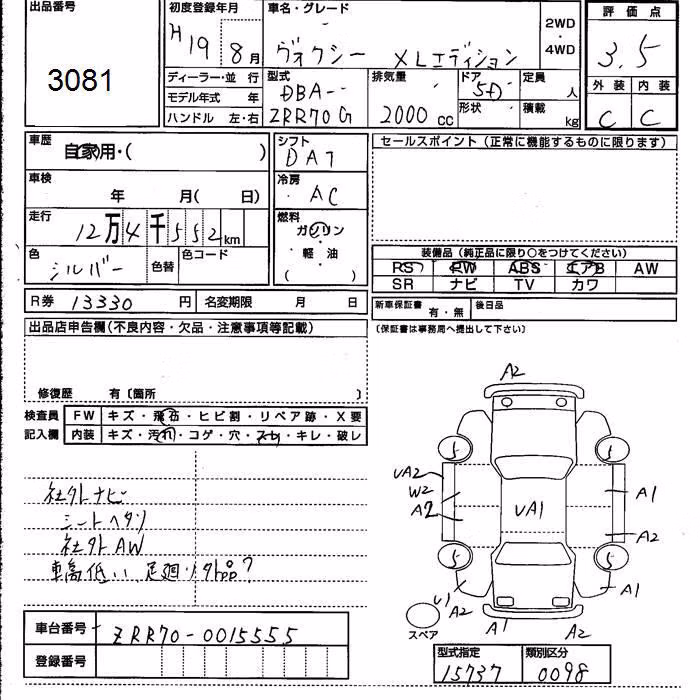 出品番号
3081
初度登録年月
H19 8月
車名・グレード
ヴォクシー XLエディション
2WD
・
4WD
評価点
3.5
外装 内装
C C
ディーラー・並 行
モデル年式 年
ハンドル 左・右
型式
DBA-
ZRR70G
排気量
2000 cc
ドア
5D
形状
定員
人
積載
kg
車歴
自家用・( )
車検
年 月( 日)
走行
12万4千552km
色
シルバー
色替
色コード
シフト
DAT
冷房
AC
燃料
ガソリン
・
軽 油
( )
セールスポイント(正常に機能するものに限ります)
装備品(純正品に限り○をつけてください)
RS PW ABS エアB AW
SR ナビ TV カワ
R券 13330 円
名変期限 月 日
新車保証書
有・無
後日品
(保証書は事務局へ提出して下さい)
出品店申告欄(不良内容・欠品・注意事項等記載)
修復歴 有〔箇所 〕
検査員
記入欄
FW キズ・飛石・ヒビ割・リペア跡・X要
内装 キズ・汚れ・コゲ・穴・スレ・キレ・破レ
社外ナビ
シートヘタリ
社外AW
車高低い、足廻り外品?
A2
5
5
UA2
W2
A2
UA1
A1
A2
5
5
U1
A2
A1
A1
A2
スペア
車台番号 ZRR70-0015555
登録番号
型式指定 類別区分
15737 0098